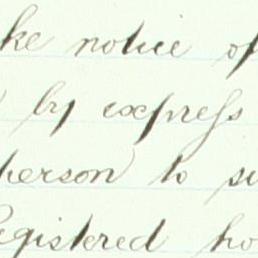 ke notice of
by express
person to su
Registered ho